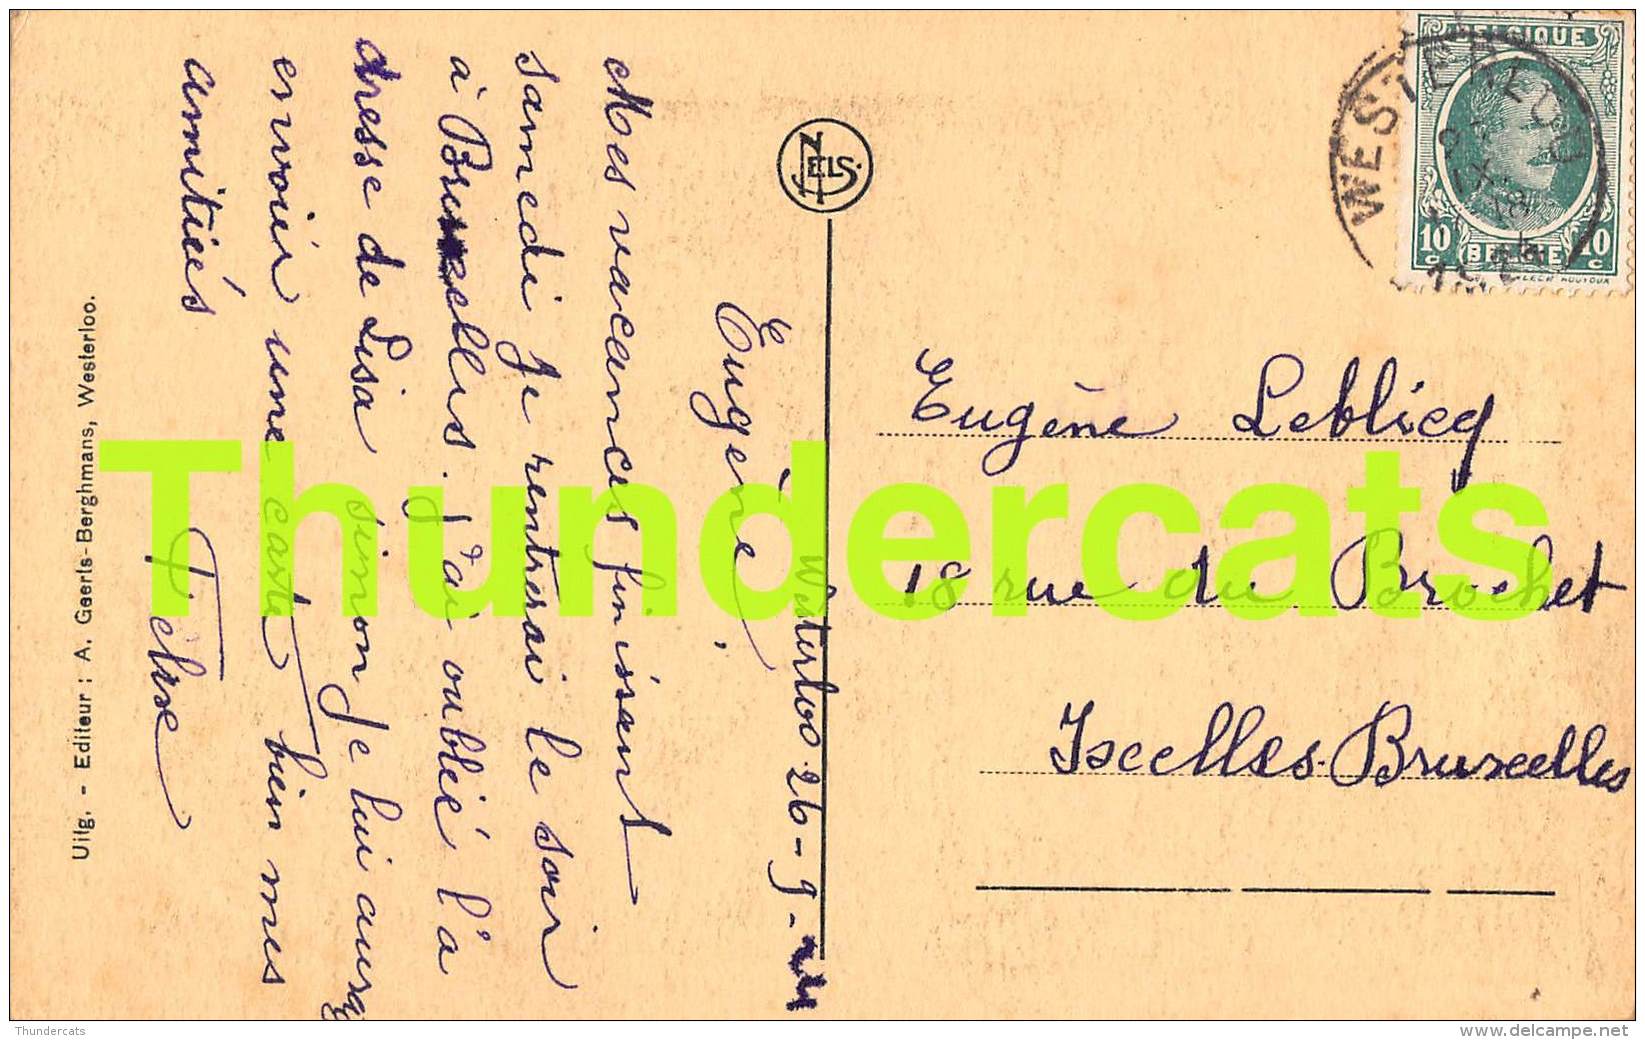 Westerloo 26-9-
Eugène,
Mes vacances finissant
samedi je rentrerai le soir
à Bruxelles. J'ai oublié l'a
dresse de Lisa sinon je lui
envoiés une carte bien mes
amitiés
Uilg. - Editeur : A. Gaerls-Berghmans, Westerloo.
NELS
BELGIQUE
10 c
BELGIE
10 c
WESTERLOO
Eugène Leblicq
18 rue du Brochet
Ixelles-Bruxelles
Thundercats
Thundercats
www.delcampe.net